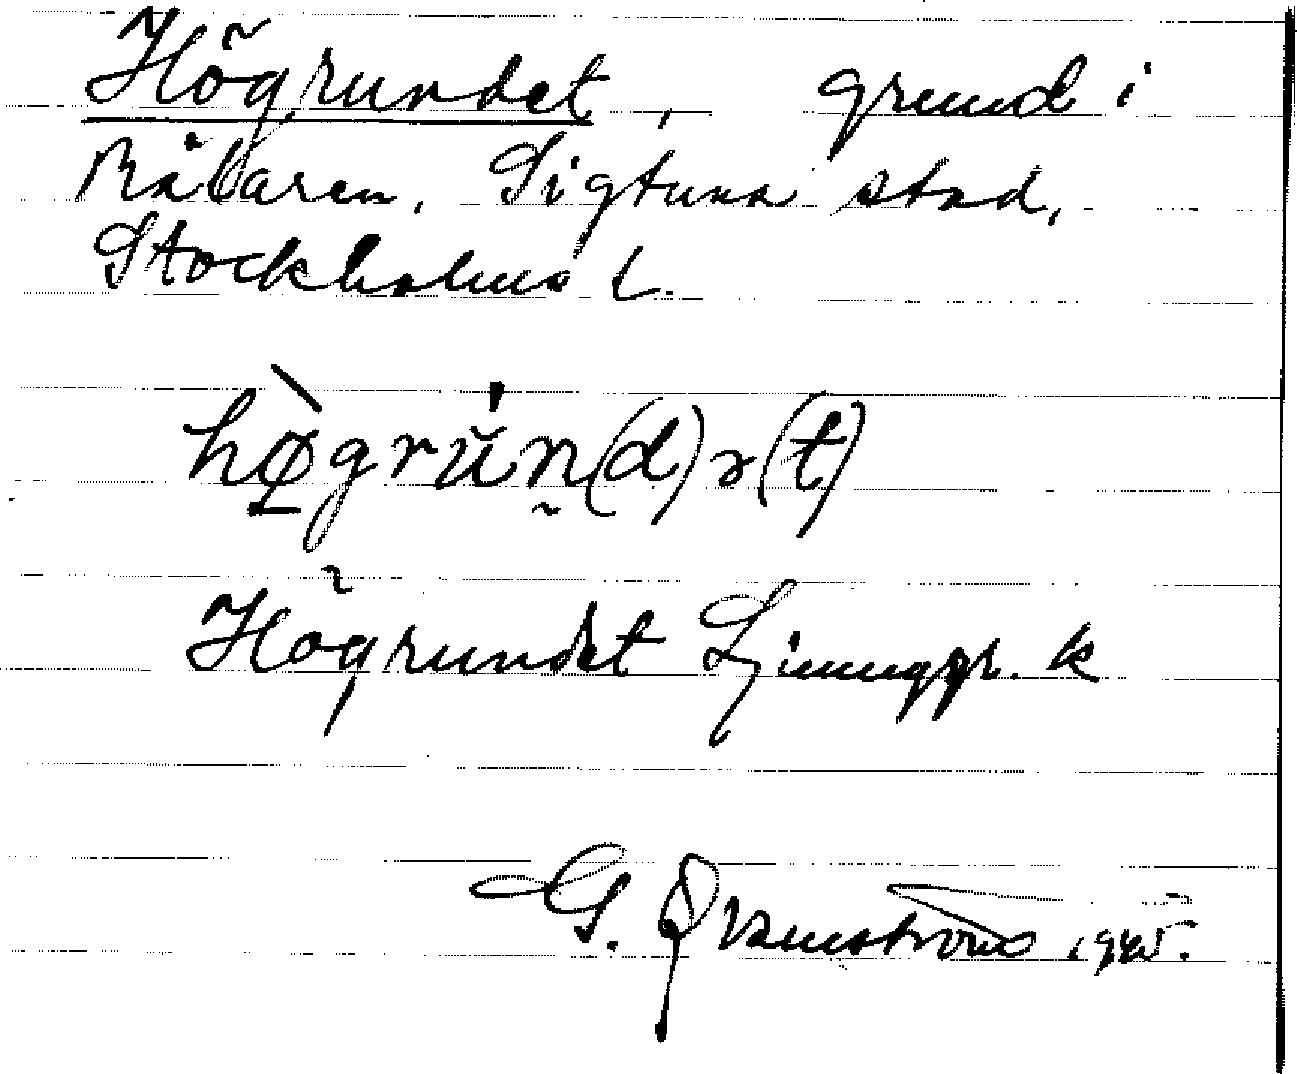 Högrundet, grund i
Mälaren, Sigtuna stad,
Stockholms l.
hø̀grun(d)ə(t)
Högrundet Ljunggr. k
G. Qvarnström 1945.